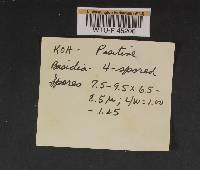 WTU-F-45200
KOH - Positive
Basidia 4-spored
Spores 7.5-9.5 x 6.5-
8.5 µ; L/W = 1.00
- 1.25